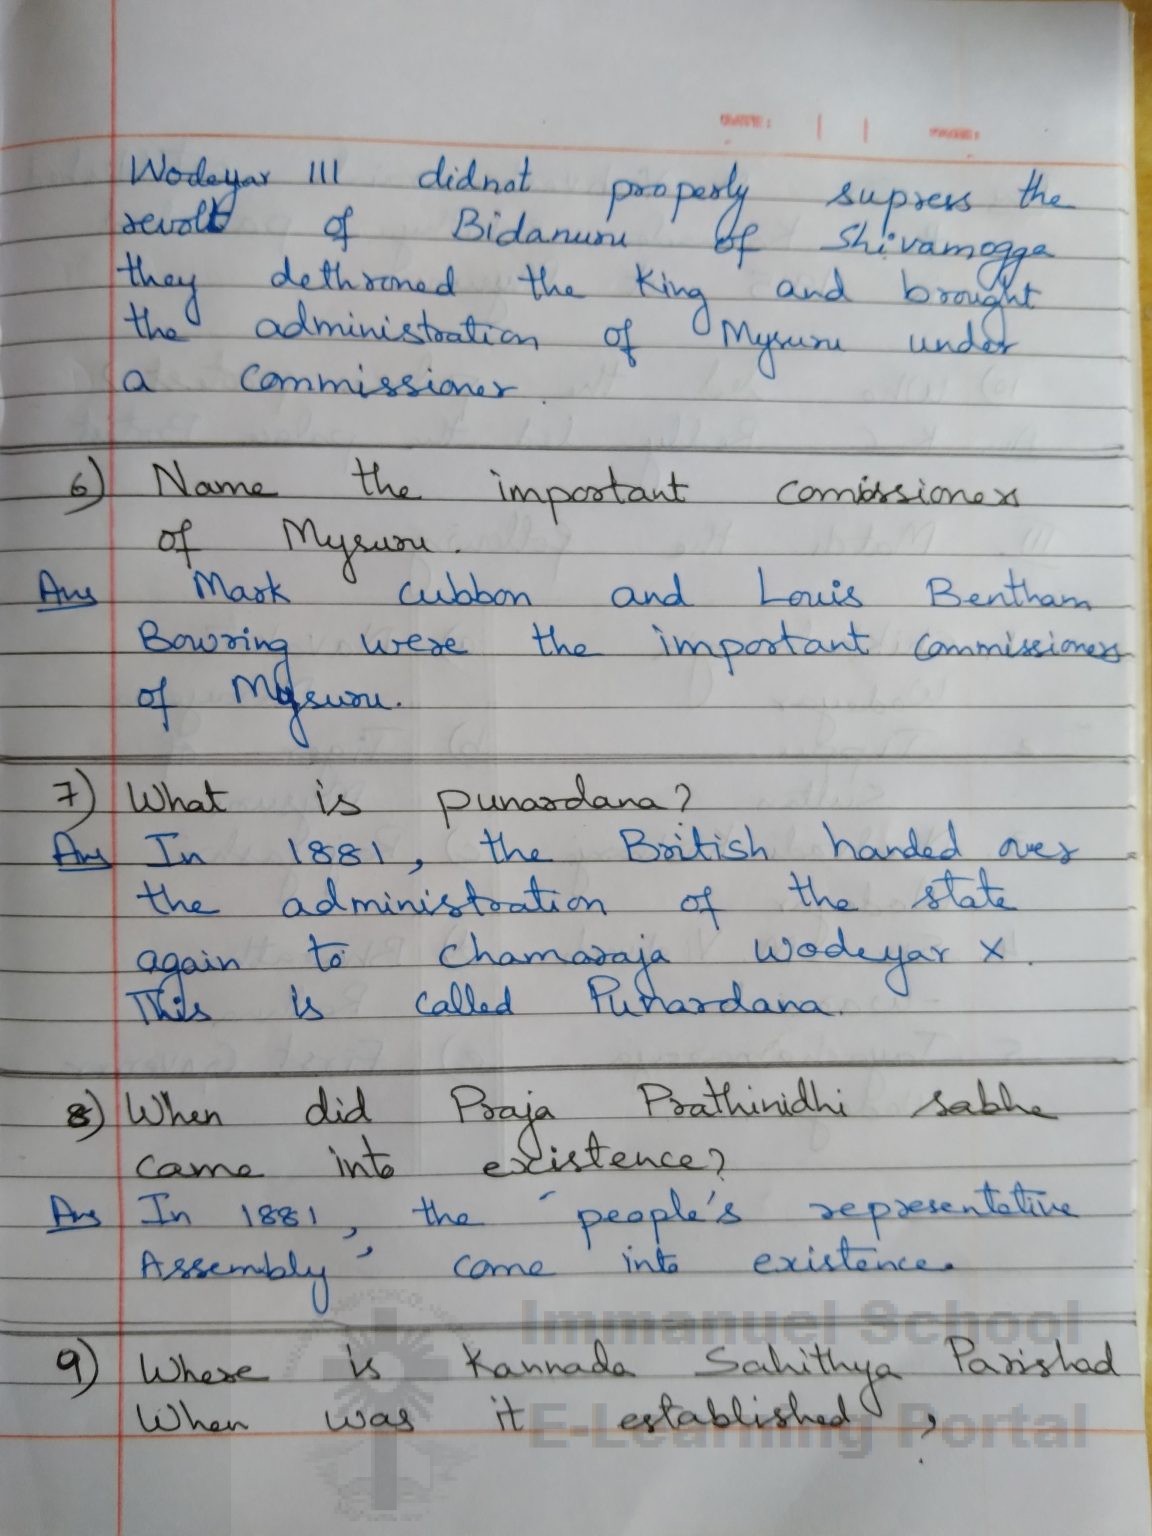 DATE: | | PAGE:
Wodeyar III didnot properly supress the
revolt of Bidanuru of Shivamogga
they dethroned the King and brought
the administration of Mysuru under
a Commissioner.
6) Name the important comissioners
of Mysuru.
Ans Mark Cubbon and Louis Bentham
Bowring were the important Commissioners
of Mysuru.
7) What is punardana?
Ans In 1881, the British handed over
the administration of the state
again to Chamaraja Wodeyar X.
This is called Punardana.
8) When did Praja Prathinidhi sabhe
came into existence?
Ans In 1881, the 'people's representative
Assembly' came into existence.
Immanuel School
9) Where is Kannada Sahithya Parishad
When was it established,
E-Learning Portal